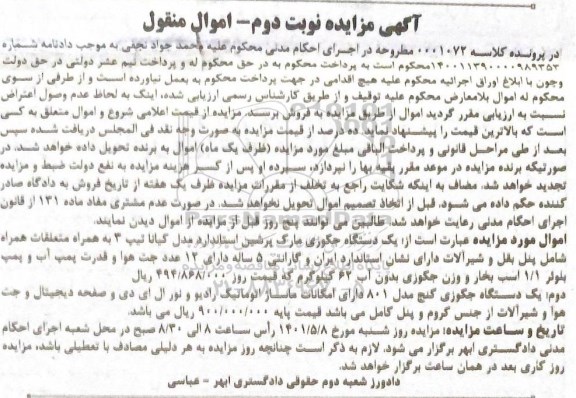 آگهی مزایده نوبت دوم- اموال منقول
در پرونده کلاسه ۰۰۰۱۰۷۳ مطروحه در اجرای احکام مدنی محکوم علیه محمد جواد نجلی به موجب دادنامه شماره
۱۴۰۰۱۱۳۹۰۰۰۰۹۸۹۳۵۳ محکوم است به پرداخت محکوم به در حق محکوم له و پرداخت نیم عشر دولتی در حق دولت
وچون با ابلاغ اوراق اجرائیه محکوم علیه هیچ اقدامی در جهت پرداخت محکوم به بعمل نیاورده است و از طرفی از سوی
محکوم له اموال بلامعارض محکوم علیه توقیف و از طریق کارشناس رسمی ارزیابی شده، اینک به لحاظ عدم وصول اعتراض
نسبت به ارزیابی مقرر گردید اموال از طریق مزایده به فروش برسند. مزایده از قیمت اعلامی شروع و اموال متعلق به کسی
است که بالاترین قیمت را پیشنهاد ده درصد از قیمت مزایده به صورت وجه نقد فی المجلس دریافت شده سپس
بعد از طی مراحل قانونی و پرداخت الباقی مبلغ مورد مزایده (ظرف یک ماه) اموال به برنده تحویل داده خواهد شد. در
صورتیکه برنده مزایده در موعد مقرر بقیه بها را نپردازد، سپرده او پس از کسر هزینه مزایده به نفع دولت ضبط و مزایده
تجدید خواهد شد. مضاف به اینکه شکایت راجع به تخلف از مقررات مزایده ظرف یک هفته از تاریخ فروش به دادگاه صادر
کننده حکم داده می شود. قبل از اتخاذ تصمیم اموال تحویل نخواهد شد. در صورت عدم مشتری مفاد ماده ۱۳۱ از قانون
اجرای احکام مدنی رعایت خواهد شد. طالبین می توانند پنج روز قبل از مزایده از اموال دیدن نمایند.
اموال مورد مزایده عبارت است از: یک دستگاه جکوزی مارک پرشین استاندارد مدل کیانا تیپ ۳ به همراه متعلقات همراه
شامل پنل بغل و شیرآلات دارای نشان استاندارد ایران و گارانتی ۵ ساله دارای ۱۲ عدد جت هوا و قدرت پمپ آب و پمپ
بلوئر ۱/۱ اسب بخار و وزن جکوزی بدون آب ۶۲ کیلوگرم که قیمت روز ۴۹۴/۸۶۸/۰۰۰ ریال
دوم: یک دستگاه جکوزی گنج مدل ۸۰۱ دارای امکانات ماساژ اتوماتیک رادیو و نور ال ای دی و صفحه دیجیتال و جت
هوا و شیرآلات از جنس کروم و پنل کامل می باشد قیمت پایه ۹۰۰/۰۰۰/۰۰۰ ریال می باشد.
تاریخ و ساعت مزایده: مزایده روز شنبه مورخ ۱۴۰۱/۵/۸ رأس ساعت ۸ الی ۸/۳۰ صبح در محل شعبه اجرای احکام
مدنی دادگستری ابهر برگزار می شود. لازم به ذکر است چنانچه روز مزایده به هر دلیلی مصادف با تعطیلی باشد، مزایده
روز کاری بعد در همان ساعت برگزار خواهد شد.
دادورز شعبه دوم حقوقی دادگستری ابهر - عباسی